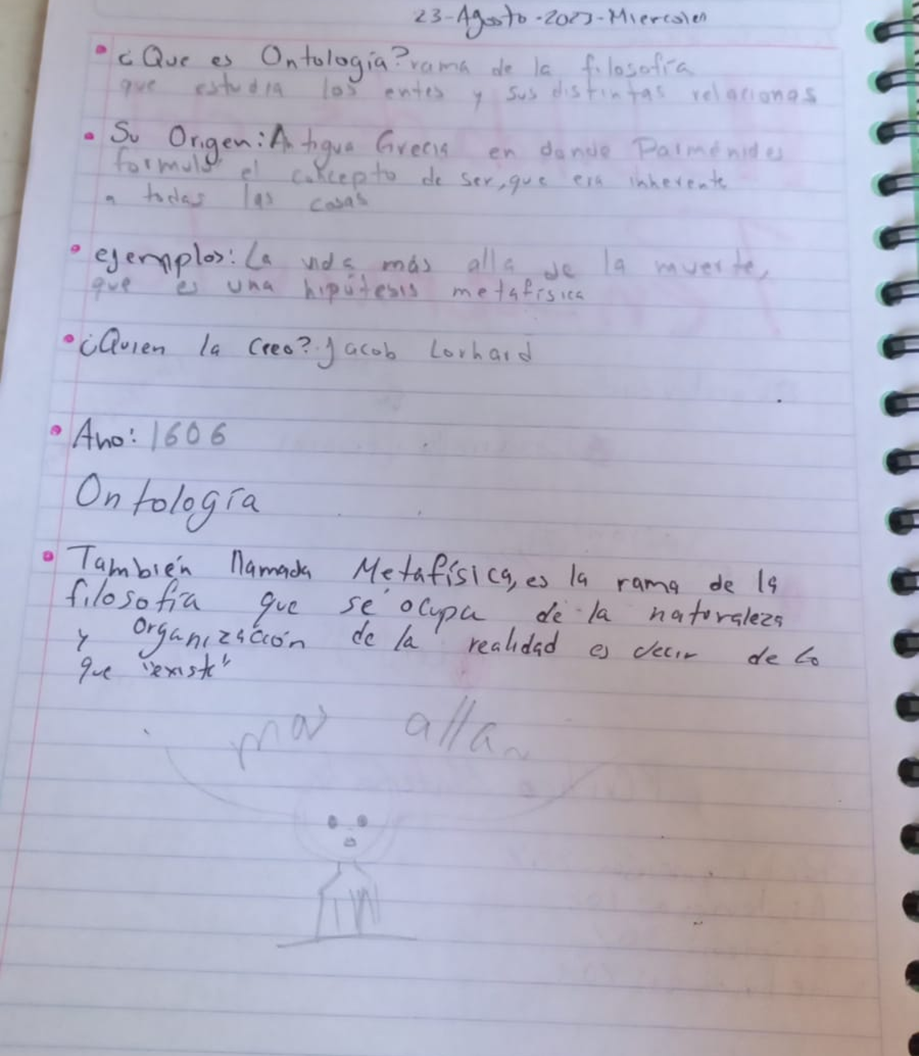 23-Agosto-2023-Miercoles
• ¿Que es Ontología? rama de la filosofía
que estudia los entes y sus distintas relaciones
• Su Origen: Antigua Grecia en donde Parménides
formuló el concepto de ser, que era inherente
a todas las cosas
• ejemplos: La vida más alla de la muerte,
que es una hipótesis metafísica
• ¿Quien la Creo? Jacob Lorhard
• Ano: 1606
Ontología
• También llamada Metafísica, es la rama de la
filosofía que se ocupa de la naturaleza
y Organización de la realidad es decir de lo
que "existe"
mas alla